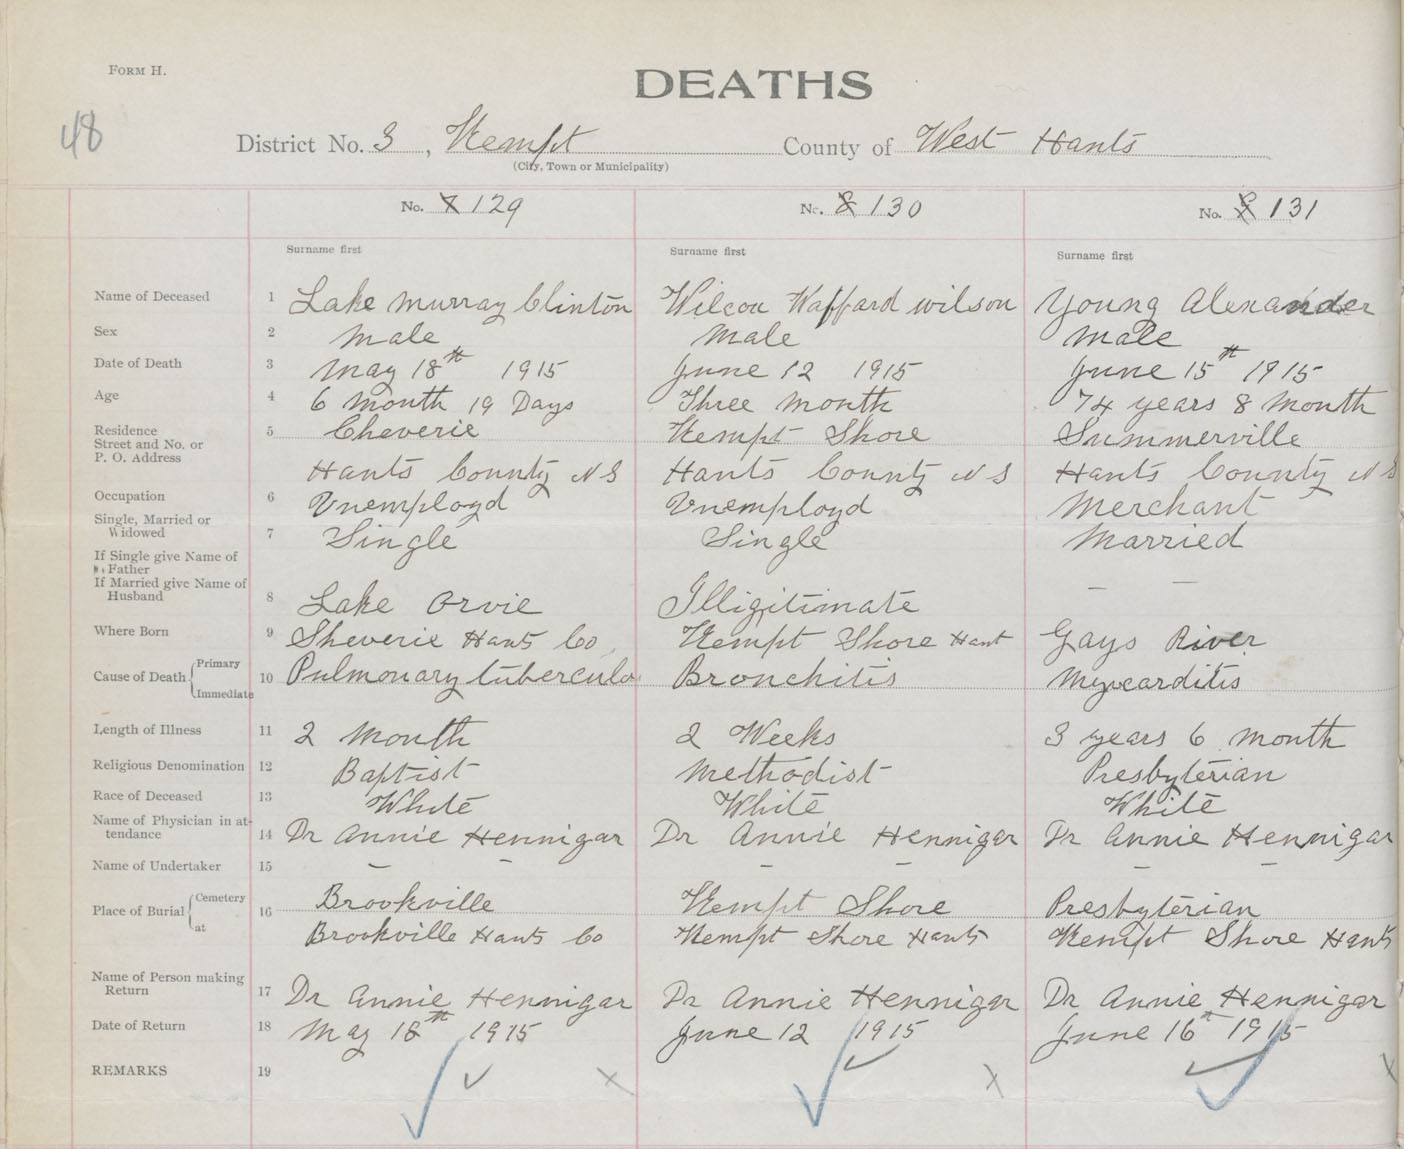 FORM H.
DEATHS
48
District No. 3, Kempt County of West Hants
(City, Town or Municipality)
No. 7 129 No. 8 130 No. 9 131
Surname first Surname first Surname first
Name of Deceased 1 Lake Murray Clinton Wilcox Waffard Wilson Young Alexander
Sex 2 Male Male Male
Date of Death 3 May 18th 1915 June 12 1915 June 15th 1915
Age 4 6 month 19 Days Three month 74 years 8 month
Residence 5 Cheverie Kempt Shore Summerville
Street and No. or
P. O. Address
Hants County N S Hants County N S Hants County N S
Occupation 6 Unemployd Unemployd Merchant
Single, Married or
Widowed 7 Single Single Married
If Single give Name of
Father
If Married give Name of
Husband 8 Lake Orvie Illigitimate – –
Where Born 9 Sheverie Hants Co Kempt Shore Hant Gays River
Cause of Death { Primary 10 Pulmonary tuberculo Bronchitis Myocarditis
Immediate
Length of Illness 11 2 Month 2 Weeks 3 years 6 month
Religious Denomination 12 Baptist Methodist Presbyterian
Race of Deceased 13 White White White
Name of Physician in at-
tendance 14 Dr Annie Hennigar Dr Annie Hennigar Dr Annie Hennigar
Name of Undertaker 15 – – – – – –
Place of Burial { Cemetery 16 Brookville Kempt Shore Presbyterian
at Brookville Hants Co Kempt Shore Hants Kempt Shore Hants
Name of Person making
Return 17 Dr Annie Hennigar Dr Annie Hennigar Dr Annie Hennigar
Date of Return 18 May 18th 1915 June 12 1915 June 16th 1915
REMARKS 19